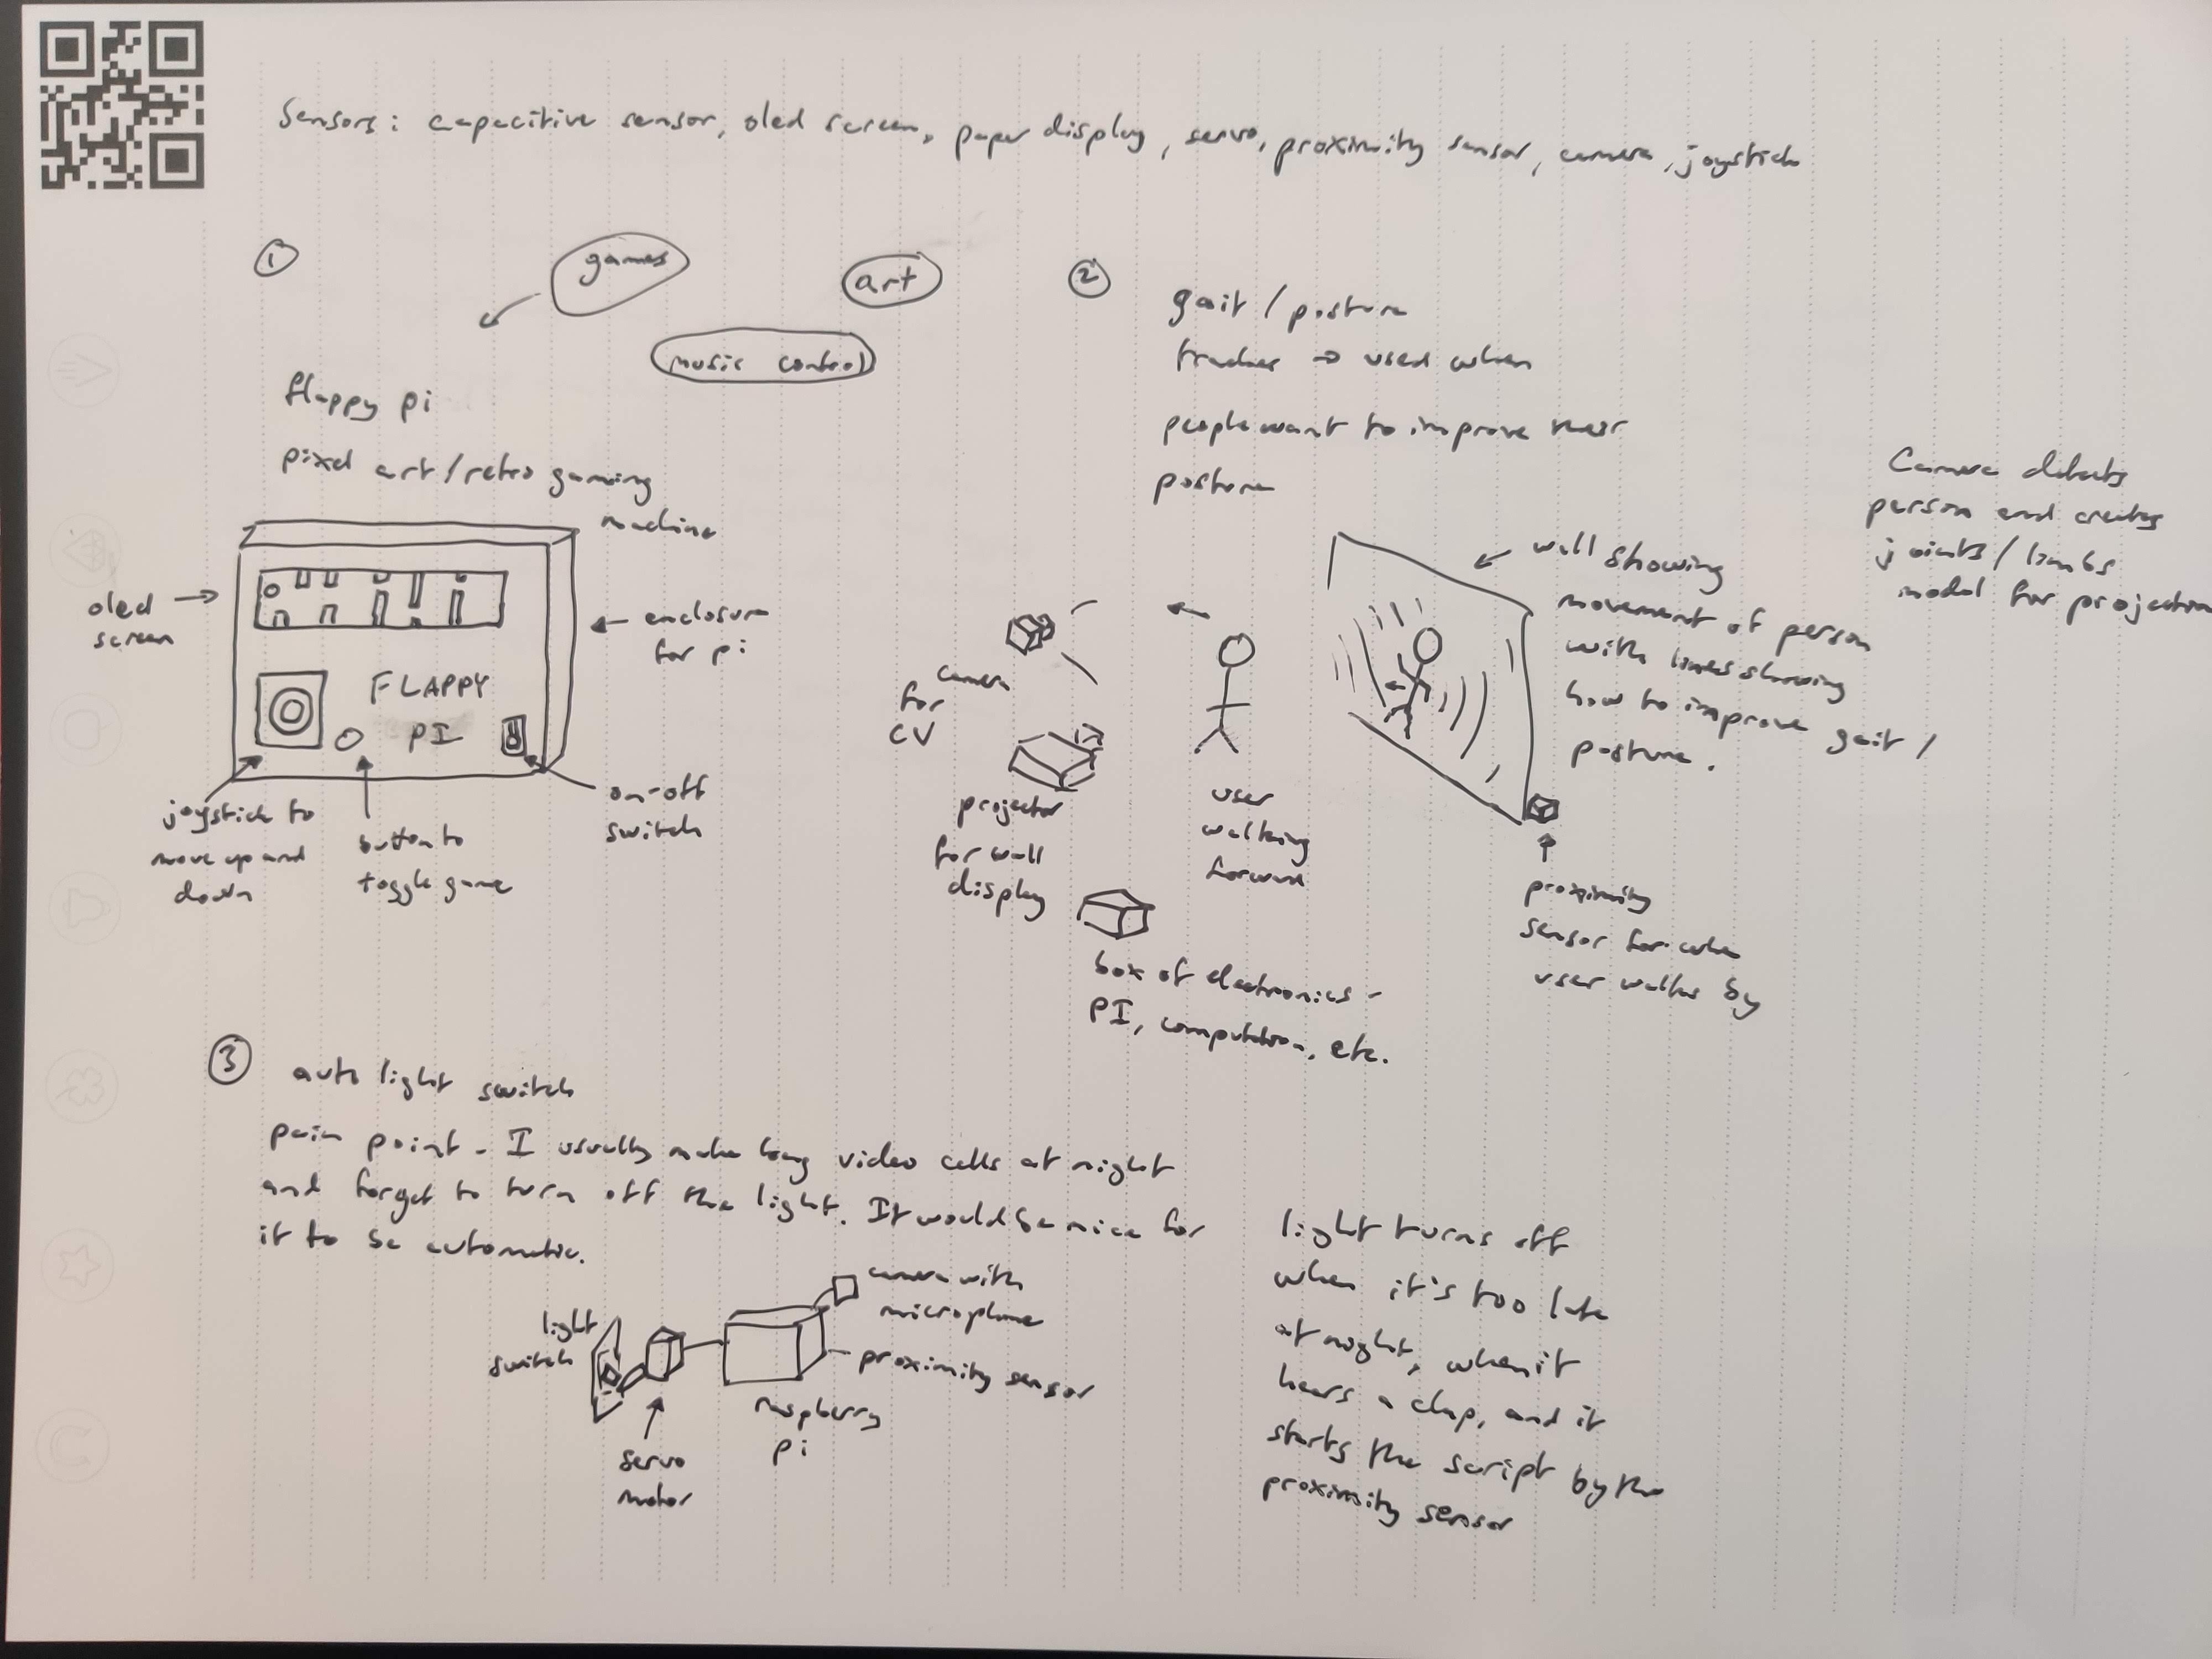 Sensors: capacitive sensor, oled screen, paper display, servo, proximity sensor, camera, joystick
①
games
art
music control
flappy pi
pixel art/retro gaming
machine
oled
screen
enclosure
for pi
FLAPPY
PI
joystick to
move up and
down
button to
toggle game
on-off
switch
②
gait / posture
tracker → used when
people want to improve their
posture
Camera detects
person and creates
joints/limbs
model for projection
wall showing
movement of person
with lines showing
how to improve gait /
posture.
camera
for
CV
projector
for wall
display
user
walking
forward
box of electronics -
PI, computation, etc.
proximity
sensor for when
user walks by
③
auto light switch
pain point - I usually make long video calls at night
and forget to turn off the light. It would be nice for
it to be automatic.
light
switch
servo
motor
camera with
microphone
proximity sensor
raspberry
pi
light turns off
when it's too late
at night, when it
hears a clap, and it
starts the script by the
proximity sensor